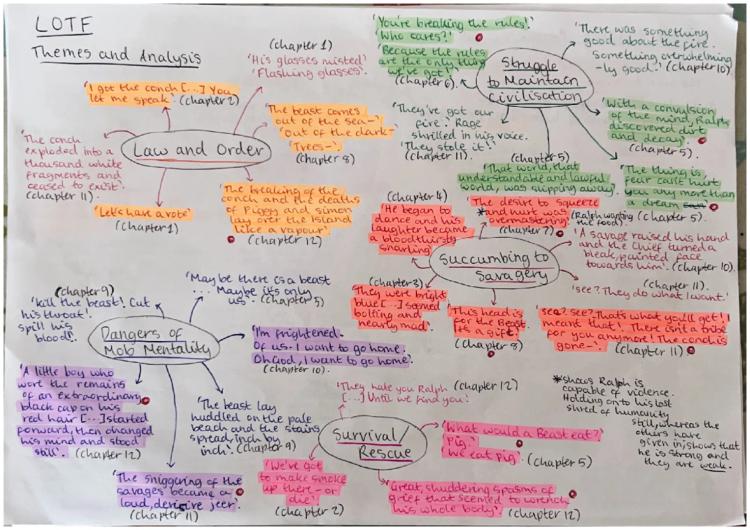 LOTF
Themes and Analysis
(chapter 1)
'His glasses misted'
'Flashing glasses'.
'I got the conch [...] You
let me speak'. (chapter 2)
'The beast comes
out of the sea-'
'Out of the dark-'
'Trees-'
(chapter 8)
Law and Order
'The conch
exploded into a
thousand white
fragments and
ceased to exist'.
(chapter 11).
'Let's have a vote'
(chapter 1)
'The breaking of the
conch and the deaths
of Piggy and Simon
lay over the island
like a vapour'
(chapter 12)
'You're breaking the rules!'
'Who cares?'
'Because the rules
are the only thing
we've got!'
(chapter 6).
Struggle
to Maintain
Civilisation
'There was something
good about the fire.
Something overwhelming
-ly good.' (chapter 10).
'They've got our
fire.' Rage
shrilled in his voice.
'They stole it!'
(chapter 11).
'With a convulsion
of the mind, Ralph
discovered dirt
and decay'.
(chapter 5).
(chapter 5)
'That world, that
understandable and lawful
world, was slipping away'.
'The thing is
fear can't hurt
you any more than
a dream'
(chapter 5).
(chapter 4)
'He began to
dance and his
laughter became
a bloodthirsty
snarling'
'The desire to squeeze
*and hurt was
overmastering'
(chapter 7)
(Ralph wanting
the food).
Succumbing to
Savagery
'A savage raised his hand
and the Chief turned a
bleak, painted face
towards him'. (chapter 10).
(chapter 11).
'See? They do what I want.'
(chapter 3)
'They were bright
blue [...] seemed
bolting and
nearly mad'.
'This head is
for the Beast.
It's a gift'.
(chapter 8)
'See? See? That's what you'll get! I
meant that! There isn't a tribe
for you anymore! The conch is
gone-'
(chapter 11)
*shows Ralph is
capable of violence.
Holding onto his last
shred of humanity
still, whereas the
others have
given in, shows that
he is strong and
they are weak.
(chapter 9)
'Kill the beast! Cut
his throat!
Spill his
blood!'
'Maybe there is a beast
... Maybe it's only
us'. (chapter 5)
Dangers of
Mob Mentality
'I'm frightened.
Of us. I want to go home.
Oh God, I want to go home'.
(chapter 10).
'A little boy who
wore the remains
of an extraordinary
black cap on his
red hair [...] started
forward, then changed
his mind and stood
still'. (chapter 12)
'The beast lay
huddled on the pale
beach and the stains
spread, inch by
inch'. (chapter 9)
'The sniggering of the
savages became a
loud, derisive jeer'.
(chapter 11)
'They hate you Ralph (chapter 12)
[...] Until we find you'.
Survival/
Rescue
'What would a Beast eat?'
'Pig.'
'We eat Pig'.
(chapter 5)
'We've got
to make smoke
up there- or
die'.
(chapter 2)
'Great, shuddering spasms of
grief that seemed to wrench
his whole body'.
(chapter 12)